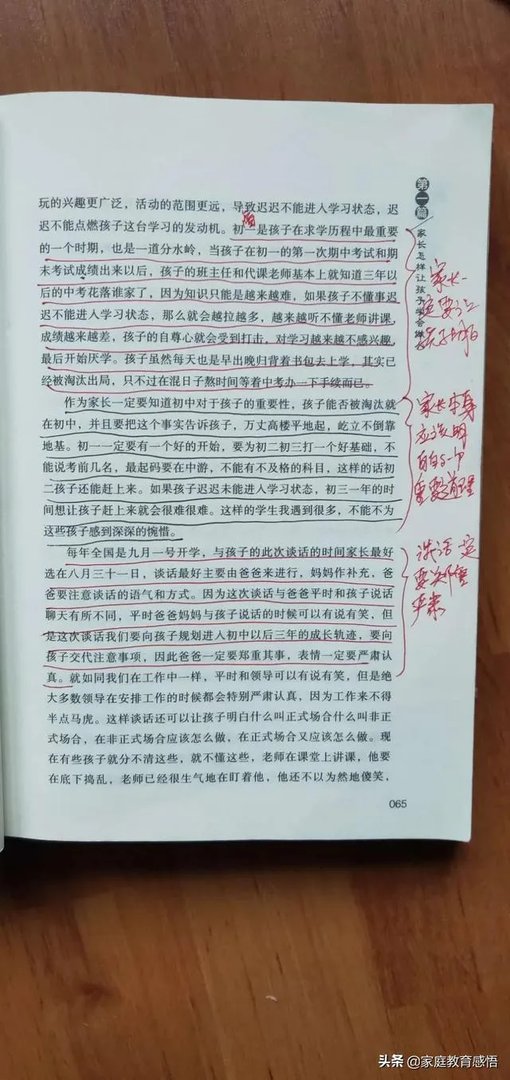 玩的兴趣更广泛，活动的范围更远，导致迟迟不能进入学习状态，迟
迟不能点燃孩子这台学习的发动机。初一是孩子在求学历程中最重要
的一个时期，也是一道分水岭，当孩子在初一的第一次期中考试和期
末考试成绩出来以后，孩子的班主任和代课老师基本上就知道三年以
后的中考花落谁家了，因为知识只能是越来越难，如果孩子不懂事迟
迟不能进入学习状态，那么就会越拉越多，越来越听不懂老师讲课，
成绩越来越差，孩子的自尊心就会受到打击，对学习越来越不感兴趣，
最后开始厌学。孩子虽然每天也是早出晚归背着书包去上学，其实已
经被淘汰出局，只不过在混日子熬时间等着中考办一下手续而已。
作为家长一定要知道初中对于孩子的重要性，孩子能否被淘汰就
在初中，并且要把这个事实告诉孩子，万丈高楼平地起，屹立不倒靠
地基。初一一定要有一个好的开始，要为初二初三打一个好基础，不
能说考前几名，最起码要在中游，不能有不及格的科目，这样的话初
二孩子还能赶上来。如果孩子迟迟未能进入学习状态，初三一年的时
间想让孩子赶上来就会很难很难。这样的学生我遇到很多，不能不为
这些孩子感到深深的惋惜。
每年全国是九月一号开学，与孩子的此次谈话的时间家长最好
选在八月三十一日，谈话最好主要由爸爸来进行，妈妈作补充，爸
爸要注意谈话的语气和方式。因为这次谈话与爸爸平时和孩子说话
聊天有所不同，平时爸爸妈妈与孩子说话的时候可以有说有笑，但
是这次谈话我们要向孩子规划进入初中以后三年的成长轨迹，要向
孩子交代注意事项，因此爸爸一定要郑重其事，表情一定要严肃认
真。就如同我们在工作中一样，平时和领导可以有说有笑，但是绝
大多数领导在安排工作的时候都会特别严肃认真，因为工作来不得
半点马虎。这样谈话还可以让孩子明白什么叫正式场合什么叫非正
式场合，在非正式场合应该怎么做，在正式场合又应该怎么做。现
在有些孩子就分不清这些，就不懂这些，老师在课堂上讲课，他要
在底下捣乱，老师已经很生气地在盯着他，他还不以为然地傻笑，
065
第一篇
家长怎样让孩子学会
家长一
定要让
孩子
家长本身
应该明
白的一个
重要前提
谈话一定
要郑重
严肃
头条 @家庭教育感悟